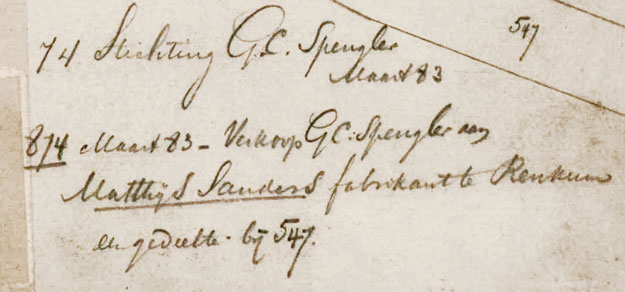 547
74 Stichting G.C. Spengler
Maart 83
874 Maart 83 - Verkoop G C: Spengler aan
Matthijs Sanders fabrikant te Renkum
en gedeelte. bij 547.